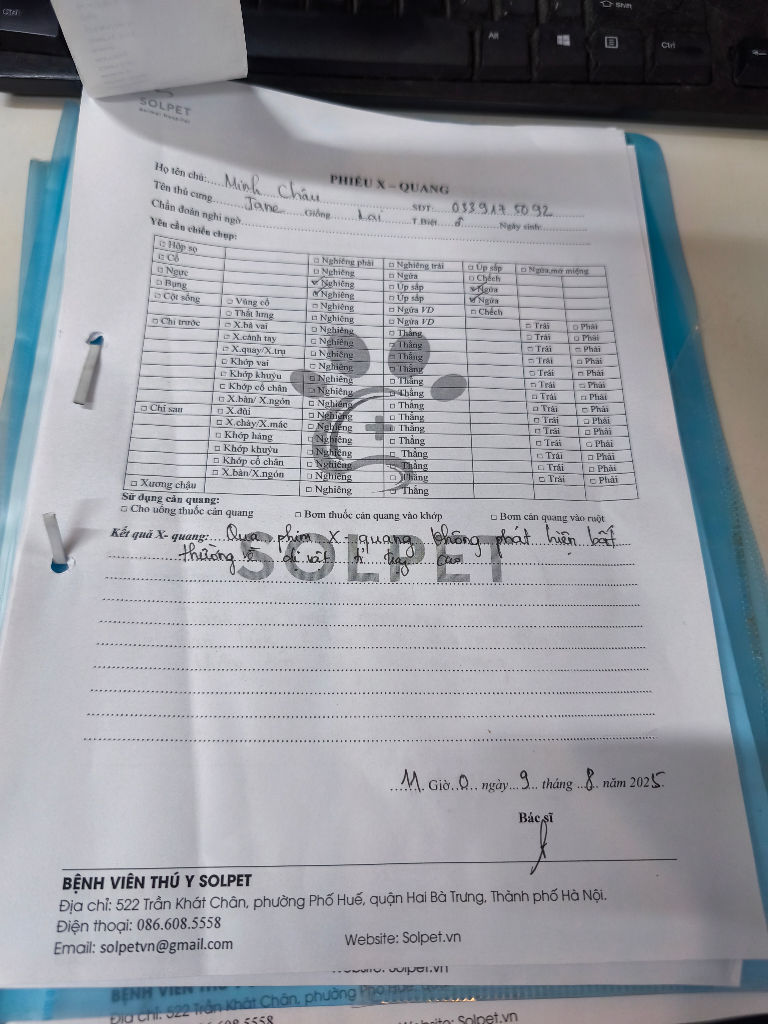 SOLPET
Animal Hospital
PHIẾU X – QUANG
Họ tên chủ: Minh Châu SĐT: 033.917.5092
Tên thú cưng Jane Giống Lai T.Biệt ♂ Ngày sinh:
Chẩn đoán nghi ngờ
Yêu cầu chiếu chụp:
□ Hộp sọ □ Nghiêng phải □ Nghiêng trái □ Úp sấp □ Ngửa, mở miệng
□ Cổ □ Nghiêng □ Ngửa □ Chếch
□ Ngực ☑ Nghiêng □ Úp sấp ☑ Ngửa
□ Bụng ☑ Nghiêng □ Úp sấp ☑ Ngửa
□ Cột sống □ Vùng cổ □ Nghiêng □ Ngửa VD □ Chếch
□ Thắt lưng □ Nghiêng □ Ngửa VD
□ Chi trước □ X.bả vai □ Nghiêng □ Thẳng □ Trái □ Phải
□ X.cánh tay □ Nghiêng □ Thẳng □ Trái □ Phải
□ X.quay/X.trụ □ Nghiêng □ Thẳng □ Trái □ Phải
□ Khớp vai □ Nghiêng □ Thẳng □ Trái □ Phải
□ Khớp khuỷu □ Nghiêng □ Thẳng □ Trái □ Phải
□ Khớp cổ chân □ Nghiêng □ Thẳng □ Trái □ Phải
□ X.bàn/ X.ngón □ Nghiêng □ Thẳng □ Trái □ Phải
□ Chi sau □ X.đùi □ Nghiêng □ Thẳng □ Trái □ Phải
□ X.chày/X.mác □ Nghiêng □ Thẳng □ Trái □ Phải
□ Khớp háng □ Nghiêng □ Thẳng □ Trái □ Phải
□ Khớp khuỷu □ Nghiêng □ Thẳng □ Trái □ Phải
□ Khớp cổ chân □ Nghiêng □ Thẳng □ Trái □ Phải
□ X.bàn/X.ngón □ Nghiêng □ Thẳng □ Trái □ Phải
□ Xương chậu □ Nghiêng □ Thẳng
Sử dụng cản quang:
□ Cho uống thuốc cản quang □ Bơm thuốc cản quang vào khớp □ Bơm cản quang vào ruột
Kết quả X- quang: Qua phim X-quang không phát hiện bất
thường về dị vật tỉ trọng cao
SOLPET
11 Giờ 0 ngày 9 tháng 8 năm 2025
Bác sĩ
BỆNH VIỆN THÚ Y SOLPET
Địa chỉ: 522 Trần Khát Chân, phường Phố Huế, quận Hai Bà Trưng, Thành phố Hà Nội.
Điện thoại: 086.608.5558
Email: solpetvn@gmail.com Website: Solpet.vn
Website: Solpet.vn
BỆNH VIỆN THÚ Y
Địa chỉ: 522 Trần Khát Chân, phường Phố Huế, quận Hai Bà Trưng
608 5558 Website: Solpet.vn
Shift
Alt
Ctrl
Ctrl